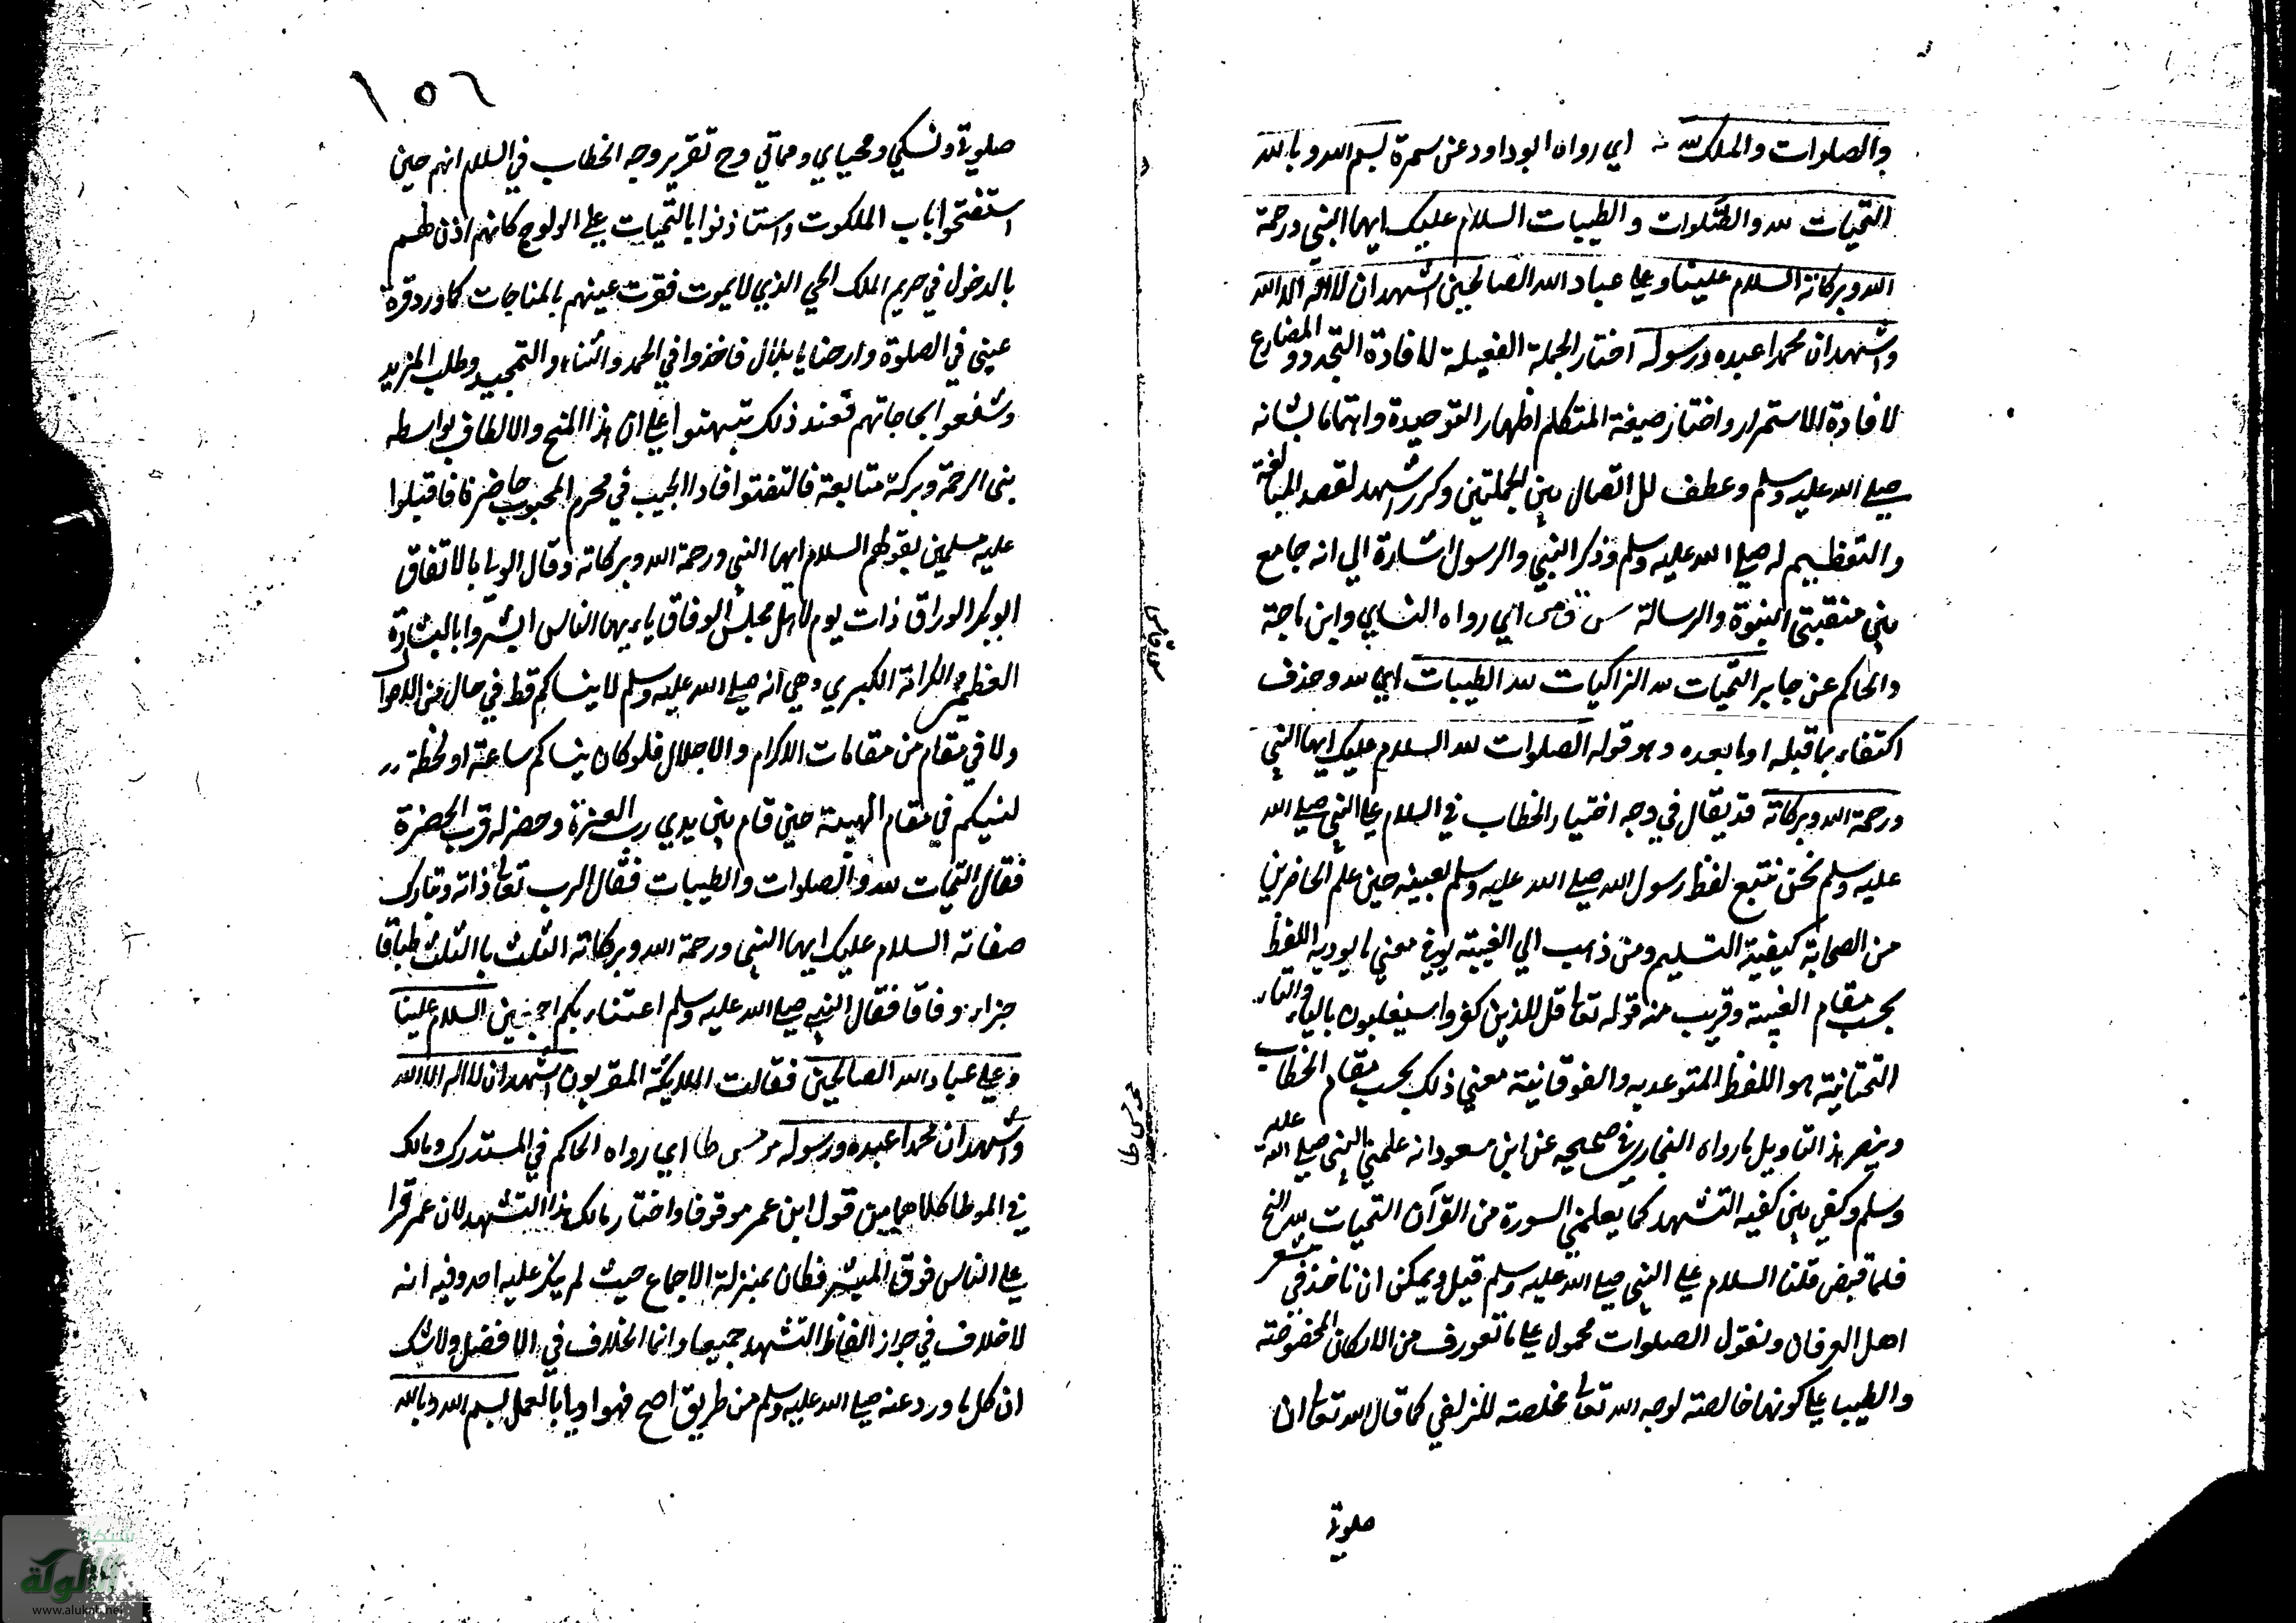 والصلوات والملك لله د اي رواه ابوداود عن سمرة بسم الله وبالله
التحيات لله والصلوات والطيبات السلام عليك ايها النبي ورحمة
الله وبركاته السلام علينا وعلى عباد الله الصالحين اشهد ان لا اله الا الله
واشهد ان محمدا عبده ورسوله اختار الجملة الفعيلة لافادة التجدد والمضارع
لافادة الاستمرار واختار صيغة المتكلم اظهار التوحيده واهتماما بشانه
صلى الله عليه وسلم وعطف للاتصال بين الجملتين وكرر اشهد لقصد المبالغة
والتعظيم له صلى الله عليه وسلم وذكر النبي والرسول اشارة الي انه جامع
بين منقبتي النبوة والرسالة س ق مس اي رواه النساي وابن ماجة
والحاكم عن جابر التحيات لله الزاكيات لله الطيبات اي لله وحذف
اكتفاء بما قبله او ما بعده وهو قوله الصلوات لله السلام عليك ايها النبي
ورحمة الله وبركاته قد يقال في وجه اختيار الخطاب في السلام على النبي صلى الله
عليه وسلم نحن نتبع لفظ رسول الله صلى الله عليه وسلم بعينه حين علم الحاضرين
من الصحابة كيفية التسليم ومن ذهب الي الغيبة يؤتى معني ما يوديه اللفظ
بحسب مقام الغيبة وقريب منه قوله تعالى قل للذين كفروا سيغلبون بالياء والتاء
التحتانية هو اللفظ المتوعد به والفوقانية معني ذلك بحسب مقام الخطاب
وينصر هذا التاويل ما رواه البخاري في صحيحه عن ابن مسعود انه علمني النبي صلى الله عليه
وسلم وكفي بين كفيه التشهد كما يعلمني السورة من القرآن التحيات لله الخ
فلما قبض قلنا السلام على النبي صلى الله عليه وسلم قيل ويمكن ان ناخذ في مشعر
اهل العرفان ونقول الصلوات محمول على ما تعورف من الاركان المخصوصة
والطيب على كونها خالصة لوجه الله تعالى مخلصة للزلفي كما قال الله تعالى ان
صلوتي
١٥٦
صلوتي ونسكي ومحياي ومماتي وح تقرير وجه الخطاب في السلام انهم حين
استفتحوا باب الملكوت واستاذنوا بالتحيات على الولوج كانهم اذن لهم
بالدخول في حريم الملك الحي الذي لا يموت فقرت عينهم بالمناجات كما ورد قرة
عيني في الصلوة وارحنا يا بلال فاخذوا في الحمد والثناء والتمجيد وطلب المزيد
وشفعوا بحاجاتهم فعند ذلك تنبهتوا على ان هذا المنح والالطاف بواسطه
نبي الرحمة وبركة متابعته فالتفتوا فاذا الحبيب في محرم المحبوب حاضر فاقبلوا
عليه مسلمين بقولهم السلام ايها النبي ورحمة الله وبركاته وقال الويا بالاتفاق
ابوبكر الوراق ذات يوم لاهل مجلس الوفاق يا ايها الناس ابشروا بالبشارة
العظمى والكرامة الكبري وهي انه صلى الله عليه وسلم لا ينساكم قط في حال من الاحوال
ولا في مقام من مقامات الاكرام والاجلال فلو كان ينساكم ساعة او لحظة
لنسيكم في مقام الهيبة حين قام بين يدي رب العزة وحضر له قرب الحضرة
فقال التحيات لله والصلوات والطيبات فقال الرب تعالى ذاته وتبارك
صفاته السلام عليك ايها النبي ورحمة الله وبركاته الثلث بالثلث طباقا
جزاء وفاقا فقال النبي صلى الله عليه وسلم اعتناء بكم اجمعين السلام علينا
وعلى عباد الله الصالحين فقالت الملايكة المقربون اشهد ان لا اله الا الله
واشهد ان محمدا عبده ورسوله مس طا اي رواه الحاكم في المستدرك ومالك
في الموطا كلاهما من قول ابن عمر موقوفا واختار مالك هذا التشهد لان عمر قرا
على الناس فوق المنبر فكان بمنزلة الاجماع حيث لم ينكر عليه احد وفيه انه
لا خلاف في جواز الفاظ التشهد جميعا وانما الخلاف في الافضل ولا شك
ان كل ما ورد عنه صلى الله عليه وسلم من طريق اصح فهو اولى بالعمل بسم الله وبالله
شبكة
الألوكة
www.alukah.net